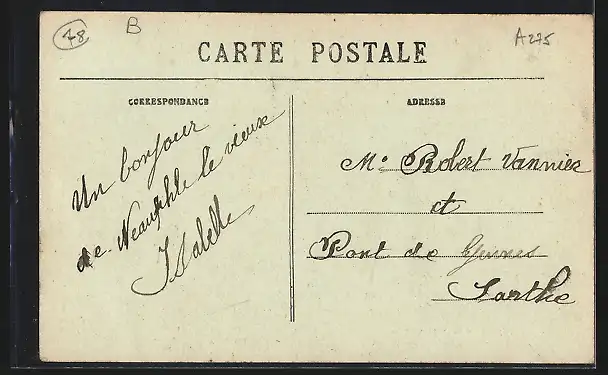 78
B
A275
CARTE POSTALE
CORRESPONDANCE
ADRESSE
Un bonjour
de Neauphle le vieux
Isabelle
Mr Robert Vannier
et
Pont de Gennes
Sarthe